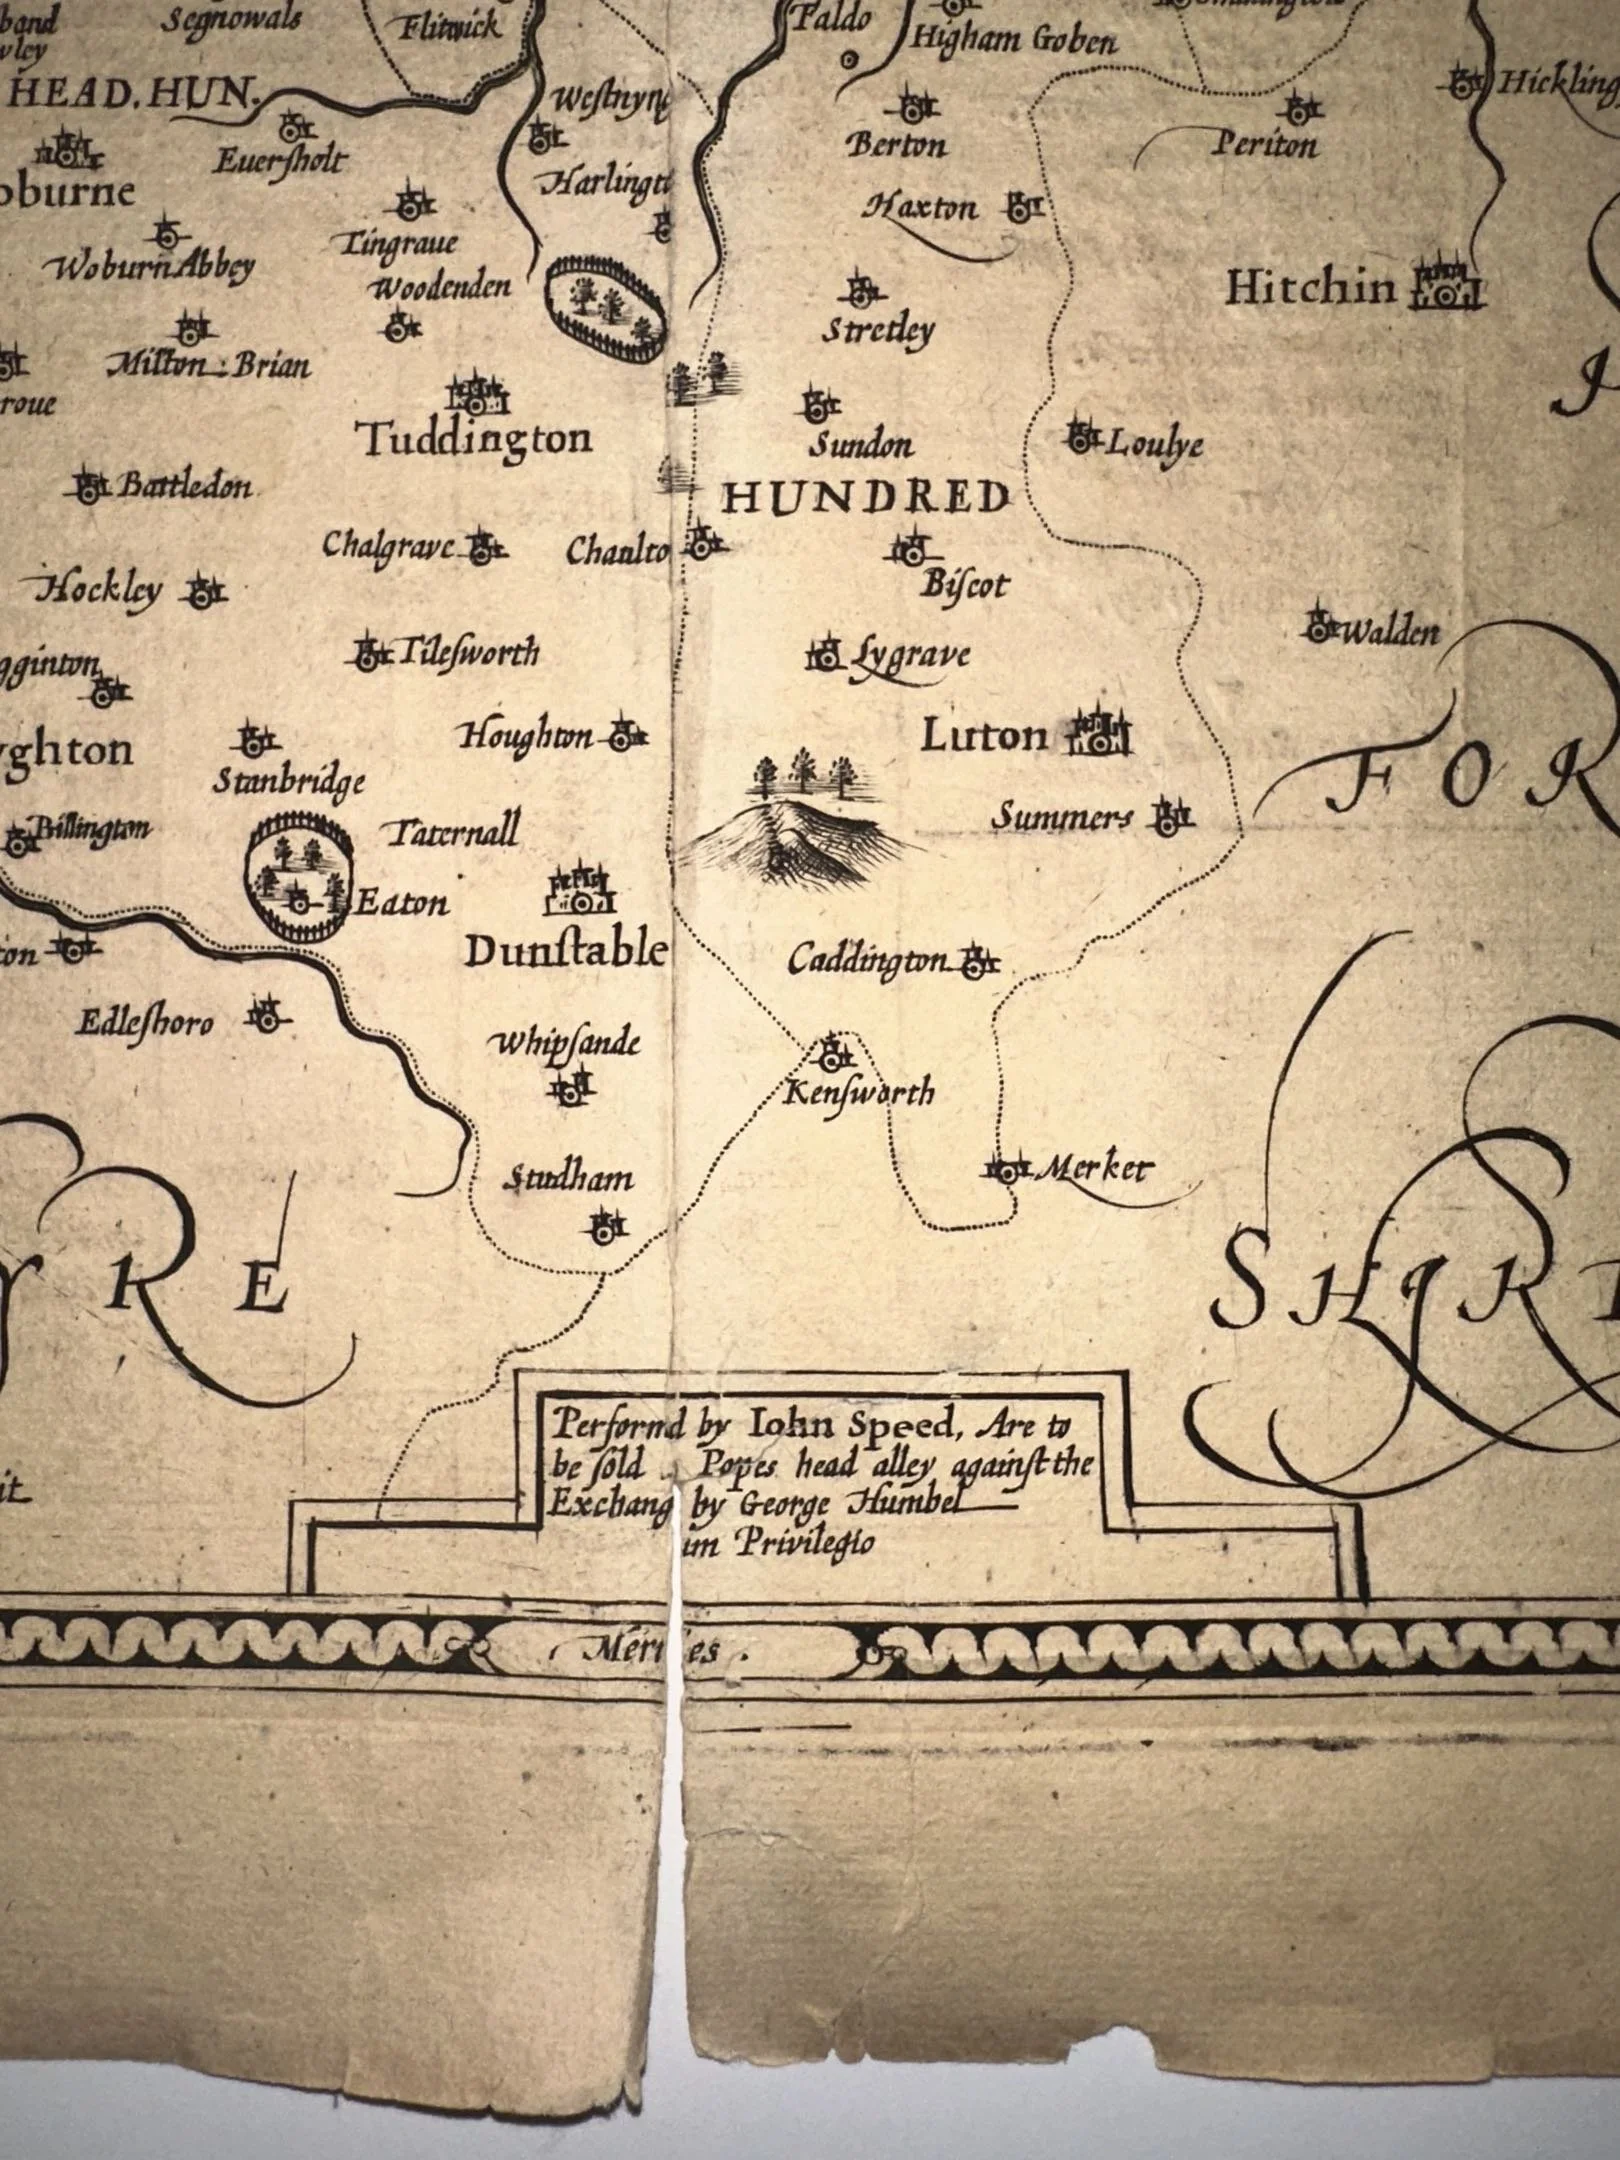 band Segnowals Flitwick Faldo Higham Goben
wley
HEAD. HUN. Westnyng Hickling
Berton Periton
Euerſholt
oburne Harlingt
Haxton
Tingraue
Woburn Abbey Woodenden Hitchin
Stretley
Milton : Brian
roue
Tuddington Sundon Loulye
Battledon HUNDRED
Chalgrave Chaulto
Hockley Biſcot
Walden
gginton Tileſworth Lygrave
yghton Houghton Luton
Stanbridge FOR
Billington Taternall Summers
Eaton
ton Dunſtable Caddington
Edleſboro
Whipſande
Kenſworth
Studham Merket
YRE SHIRE
Performd by Iohn Speed, Are to
be ſold Popes head alley againſt the
Exchang by George Humbel
um Privilegio
it
Meri ies .